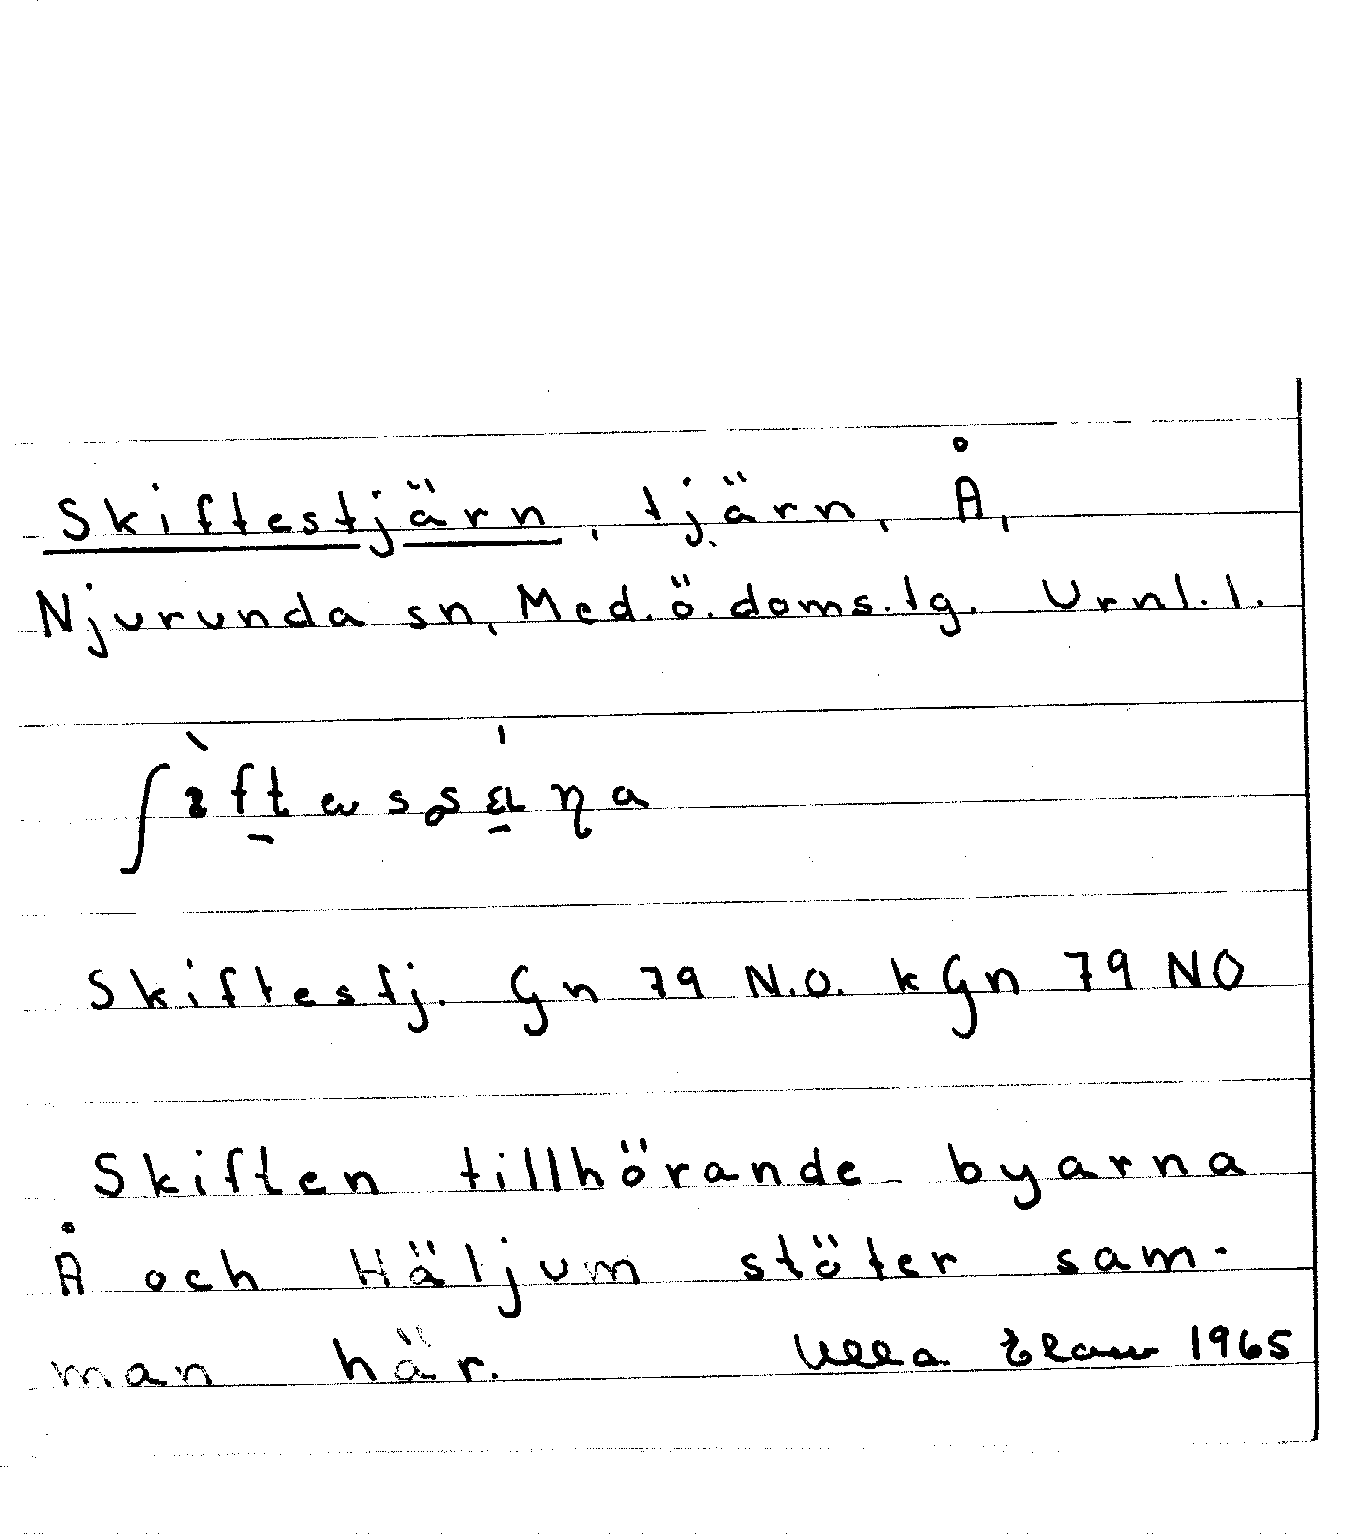 Skiftestjärn, tjärn, Å,
Njurunda sn, Med. ö. doms. tg. Urnl. l.
Skiftestj. Gn 79 N.O. kGn 79 NO
Skiften tillhörande byarna
Å och Häljum stöter sam-
man här. Ulla 1965